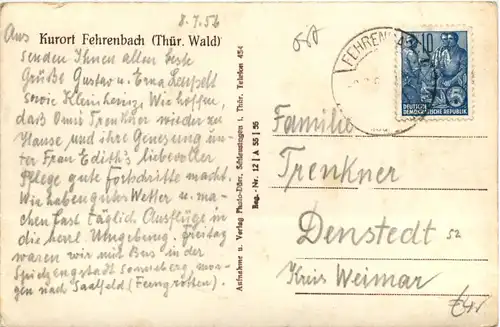 8.7.56
Aus
Kurort Fehrenbach (Thür. Wald)
senden Ihnen allen beste
Grüße Gustav u. Erna
sowie Kleinheinz. Wir hoffen,
dass Omi Trenkner wieder zu
Hause und ihre Genesung un-
ter Frau Edith's liebevoller
Pflege gute Fortschritte macht.
Wir haben gutes Wetter u. ma-
chen fast täglich Ausflüge in
die herrl. Umgebung. Freitag
waren wir mit Bus in der
Spielzeugstadt Sonneberg, mor-
gen nach Saalfeld (Feengrotten).
Aufnahme u. Verlag Photo-Ihler, Schleusingen i. Thür. Telefon 454
Reg.-Nr. 12 | A 55 | 56
FEHRENBACH
10
5
DEUTSCHE
DEMOKRATISCHE REPUBLIK
Familie
Trenkner
Denstedt 52
Kreis Weimar